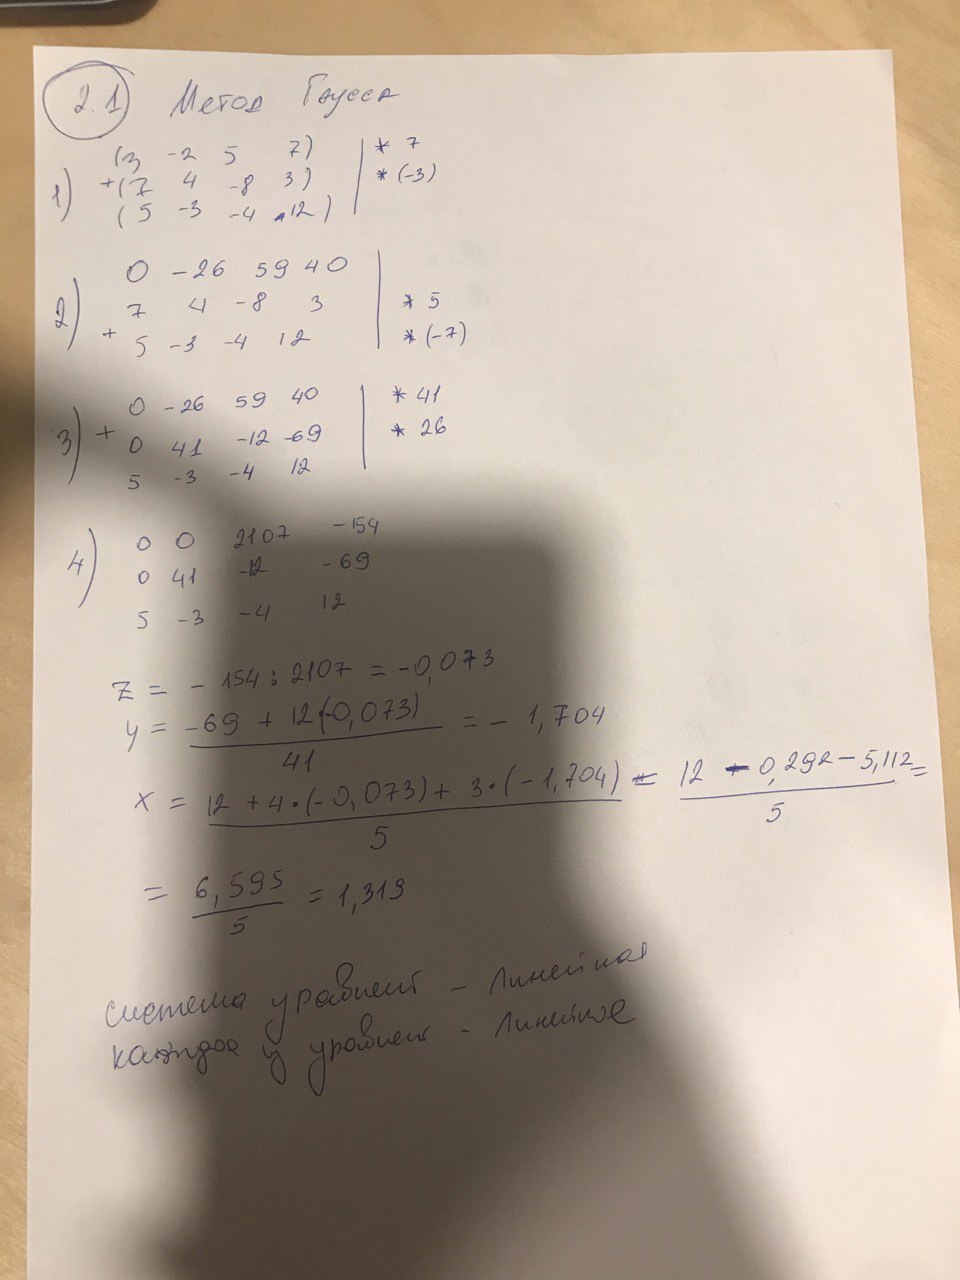 2.1 Метод Гаусса
(3 -2 5 7) | * 7
1) +(7 4 -8 3) | * (-3)
(5 -3 -4 12) |
0 -26 59 40 |
2) 7 4 -8 3 | * 5
+ 5 -3 -4 12 | * (-7)
0 -26 59 40 | * 41
3) + 0 41 -12 -69 | * 26
5 -3 -4 12 |
0 0 2107 -154
4) 0 41 -12 -69
5 -3 -4 12
z = - 154 : 2107 = -0,073
y = -69 + 12(-0,073) / 41 = - 1,704
x = 12 + 4·(-0,073) + 3·(-1,704) / 5 = 12 - 0,292 - 5,112 / 5 =
= 6,595 / 5 = 1,319
система уравнент - линейная
каждое у уравнент - линейное